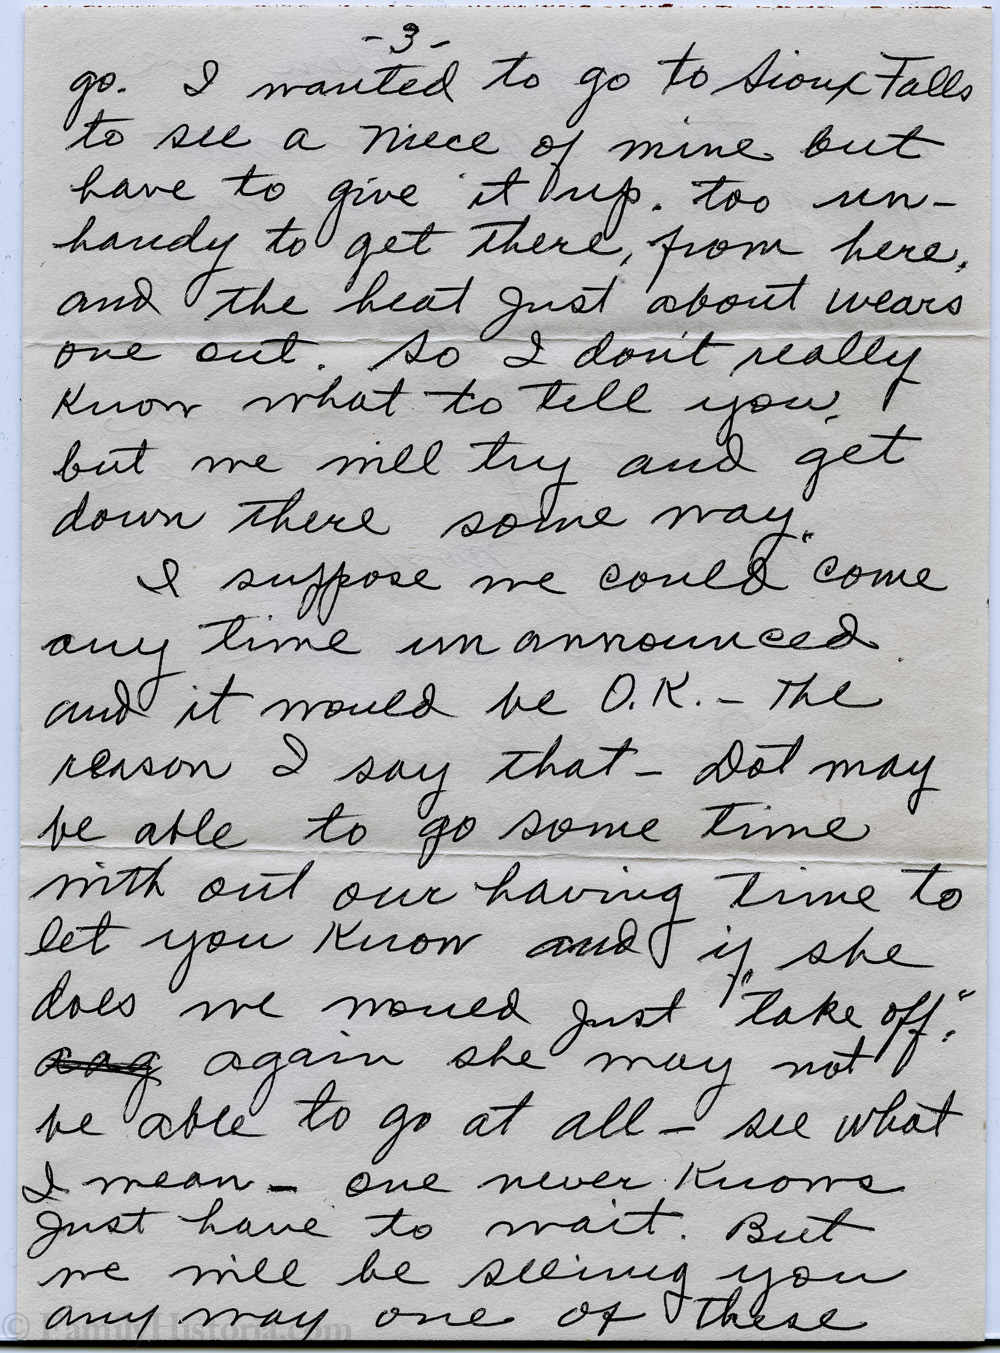 -3-
go. I wanted to go to Sioux Falls
to see a niece of mine but
have to give it up. too un-
handy to get there, from here,
and the heat just about wears
one out. So I don't really
know what to tell you,
but we will try and get
down there some way.
I suppose we could "come
any time unannounced
and it would be O.K. - The
reason I say that - Dot may
be able to go some time
with out our having time to
let you know and if she
does we would just "take off."
again she may not
be able to go at all - see what
I mean - one never knows
just have to wait. But
we will be seeing you
any way one of these
© FamilyHistoria.com